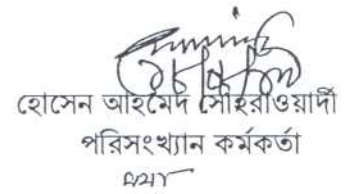 হোসেন আহমেদ সোহরাওয়ার্দী
পরিসংখ্যান কর্মকর্তা